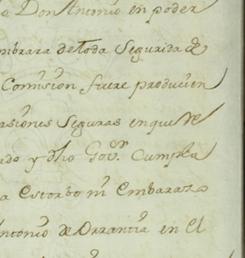 Don Antonio en poder
mbrara de toda Seguridad
Comision fuere producien
asiones Seguras en que se
ado y dho Gov.or Cumpla
a estorbo ni Embarazo
Antonio de Arrantia en el